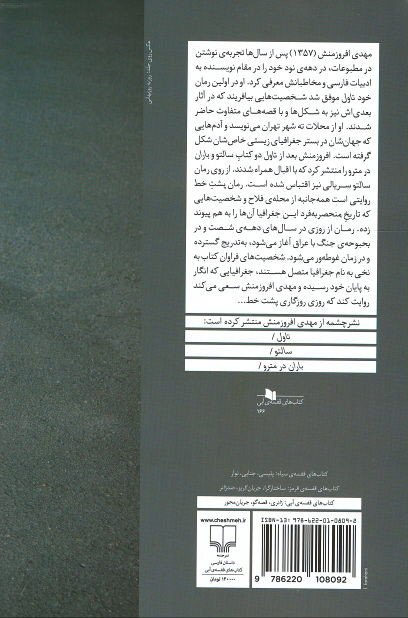 مهدی افروزمنش (۱۳۵۷) پس از سال‌ها تجربه‌ی نوشتن
در مطبوعات، در دهه‌ی نود خود را در مقام نویسنده به
ادبیات فارسی و مخاطبانش معرفی کرد. او در اولین رمان
خود تاول موفق شد شخصیت‌هایی بیافریند که در آثار
بعدی‌اش نیز به شکل‌ها و با قصه‌های متفاوت حاضر
شدند. او از محلات ته شهر تهران می‌نویسد و آدم‌هایی
که جهان‌شان در بستر جغرافیای زیستی خاص‌شان شکل
گرفته است. افروزمنش بعد از تاول دو کتاب سالتو و باران
در مترو را منتشر کرد که با اقبال همراه شدند. از روی رمان
سالتو سریالی نیز اقتباس شده است. رمان پشتِ خط
روایتی است همه‌جانبه از محله‌ی فلاح و شخصیت‌هایی
که تاریخِ منحصربه‌فرد این جغرافیا آن‌ها را به هم پیوند
زده. رمان از روزی در سال‌های دهه‌ی شصت و در
بحبوحه‌ی جنگ با عراق آغاز می‌شود، به‌تدریج گسترده
و در زمان غوطه‌ور می‌شود. شخصیت‌های فراوان کتاب به
نخی به نام جغرافیا متصل هستند، جغرافیایی که انگار
به پایان خود رسیده و مهدی افروزمنش سعی می‌کند
روایت کند که روزی روزگاری پشت خط...
نشرچشمه از مهدی افروزمنش منتشر کرده است:
تاول /
سالتو /
باران در مترو /
کتاب‌های قفسه‌ی آبی
۱۶۶
کتاب‌های قفسه‌ی سیاه: پلیسی، جنایی، نوآر
کتاب‌های قفسه‌ی قرمز: ساختارگرا، جریان‌گریز، ضدژانر
کتاب‌های قفسه‌ی آبی: ژانری، قصه‌گو، جریان‌محور
www.cheshmeh.ir
نشرچشمه
داستان فارسی
کتاب‌های قفسه‌ی آبی
۱۴۰۰۰۰ تومان
ISBN-13: 978-622-01-0809-2
9 786220 108092